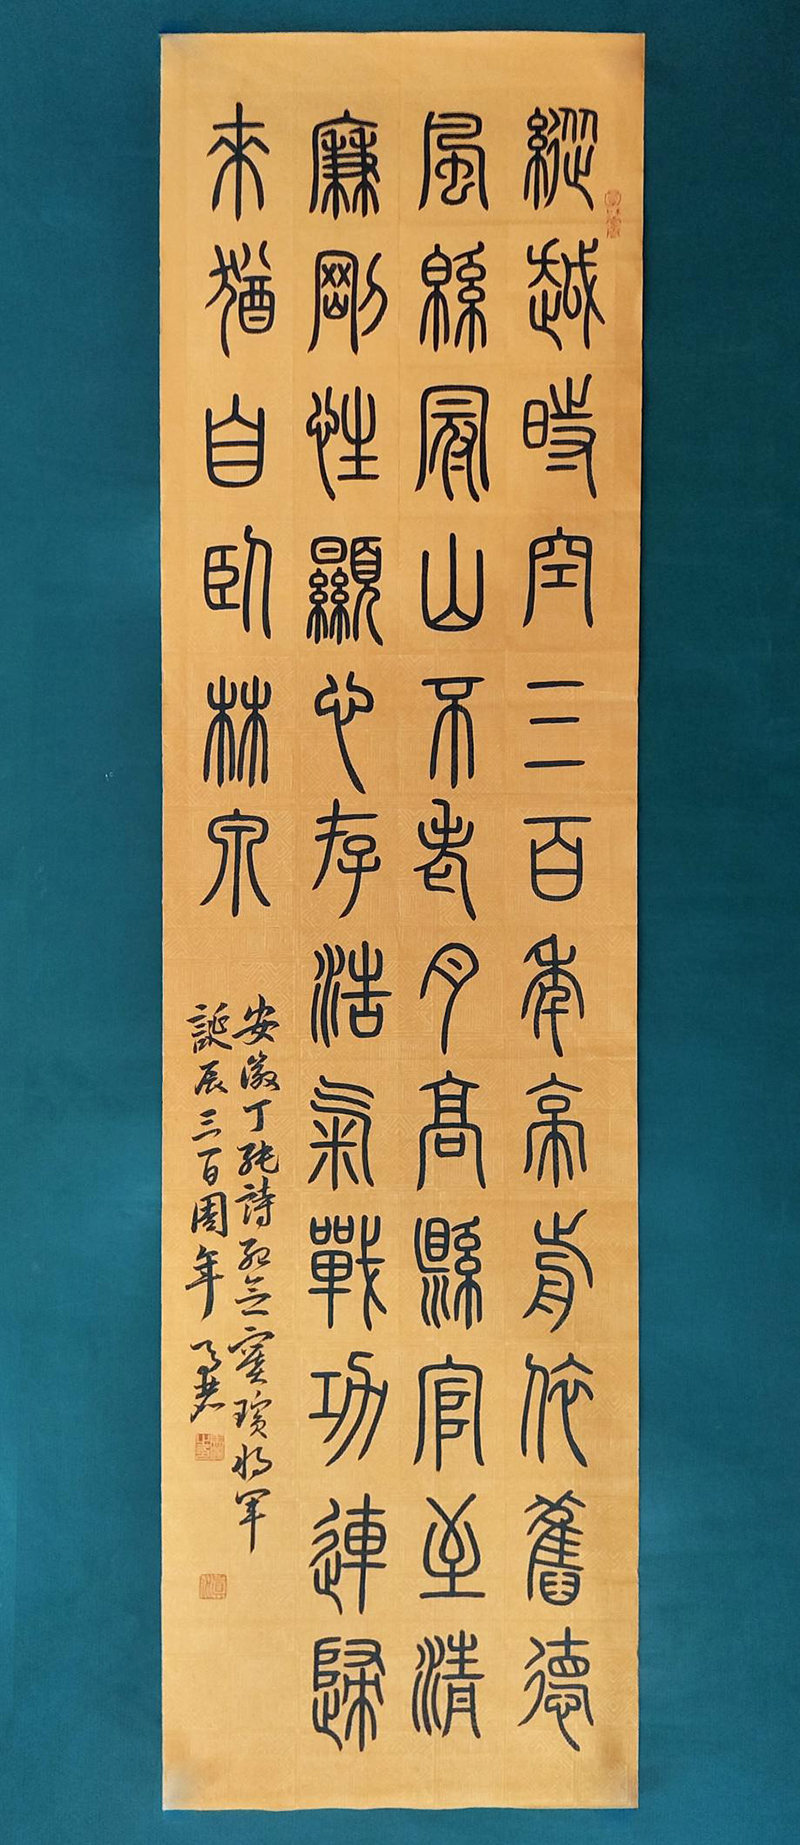 縱越時空三百年依舊德
風緜冠山不老月高縣官至清
廉剛性顯心存浩氣戰功連歸
來猶自臥林泉
安徽丁詩紀念寶瑸將軍
誕辰三百周年